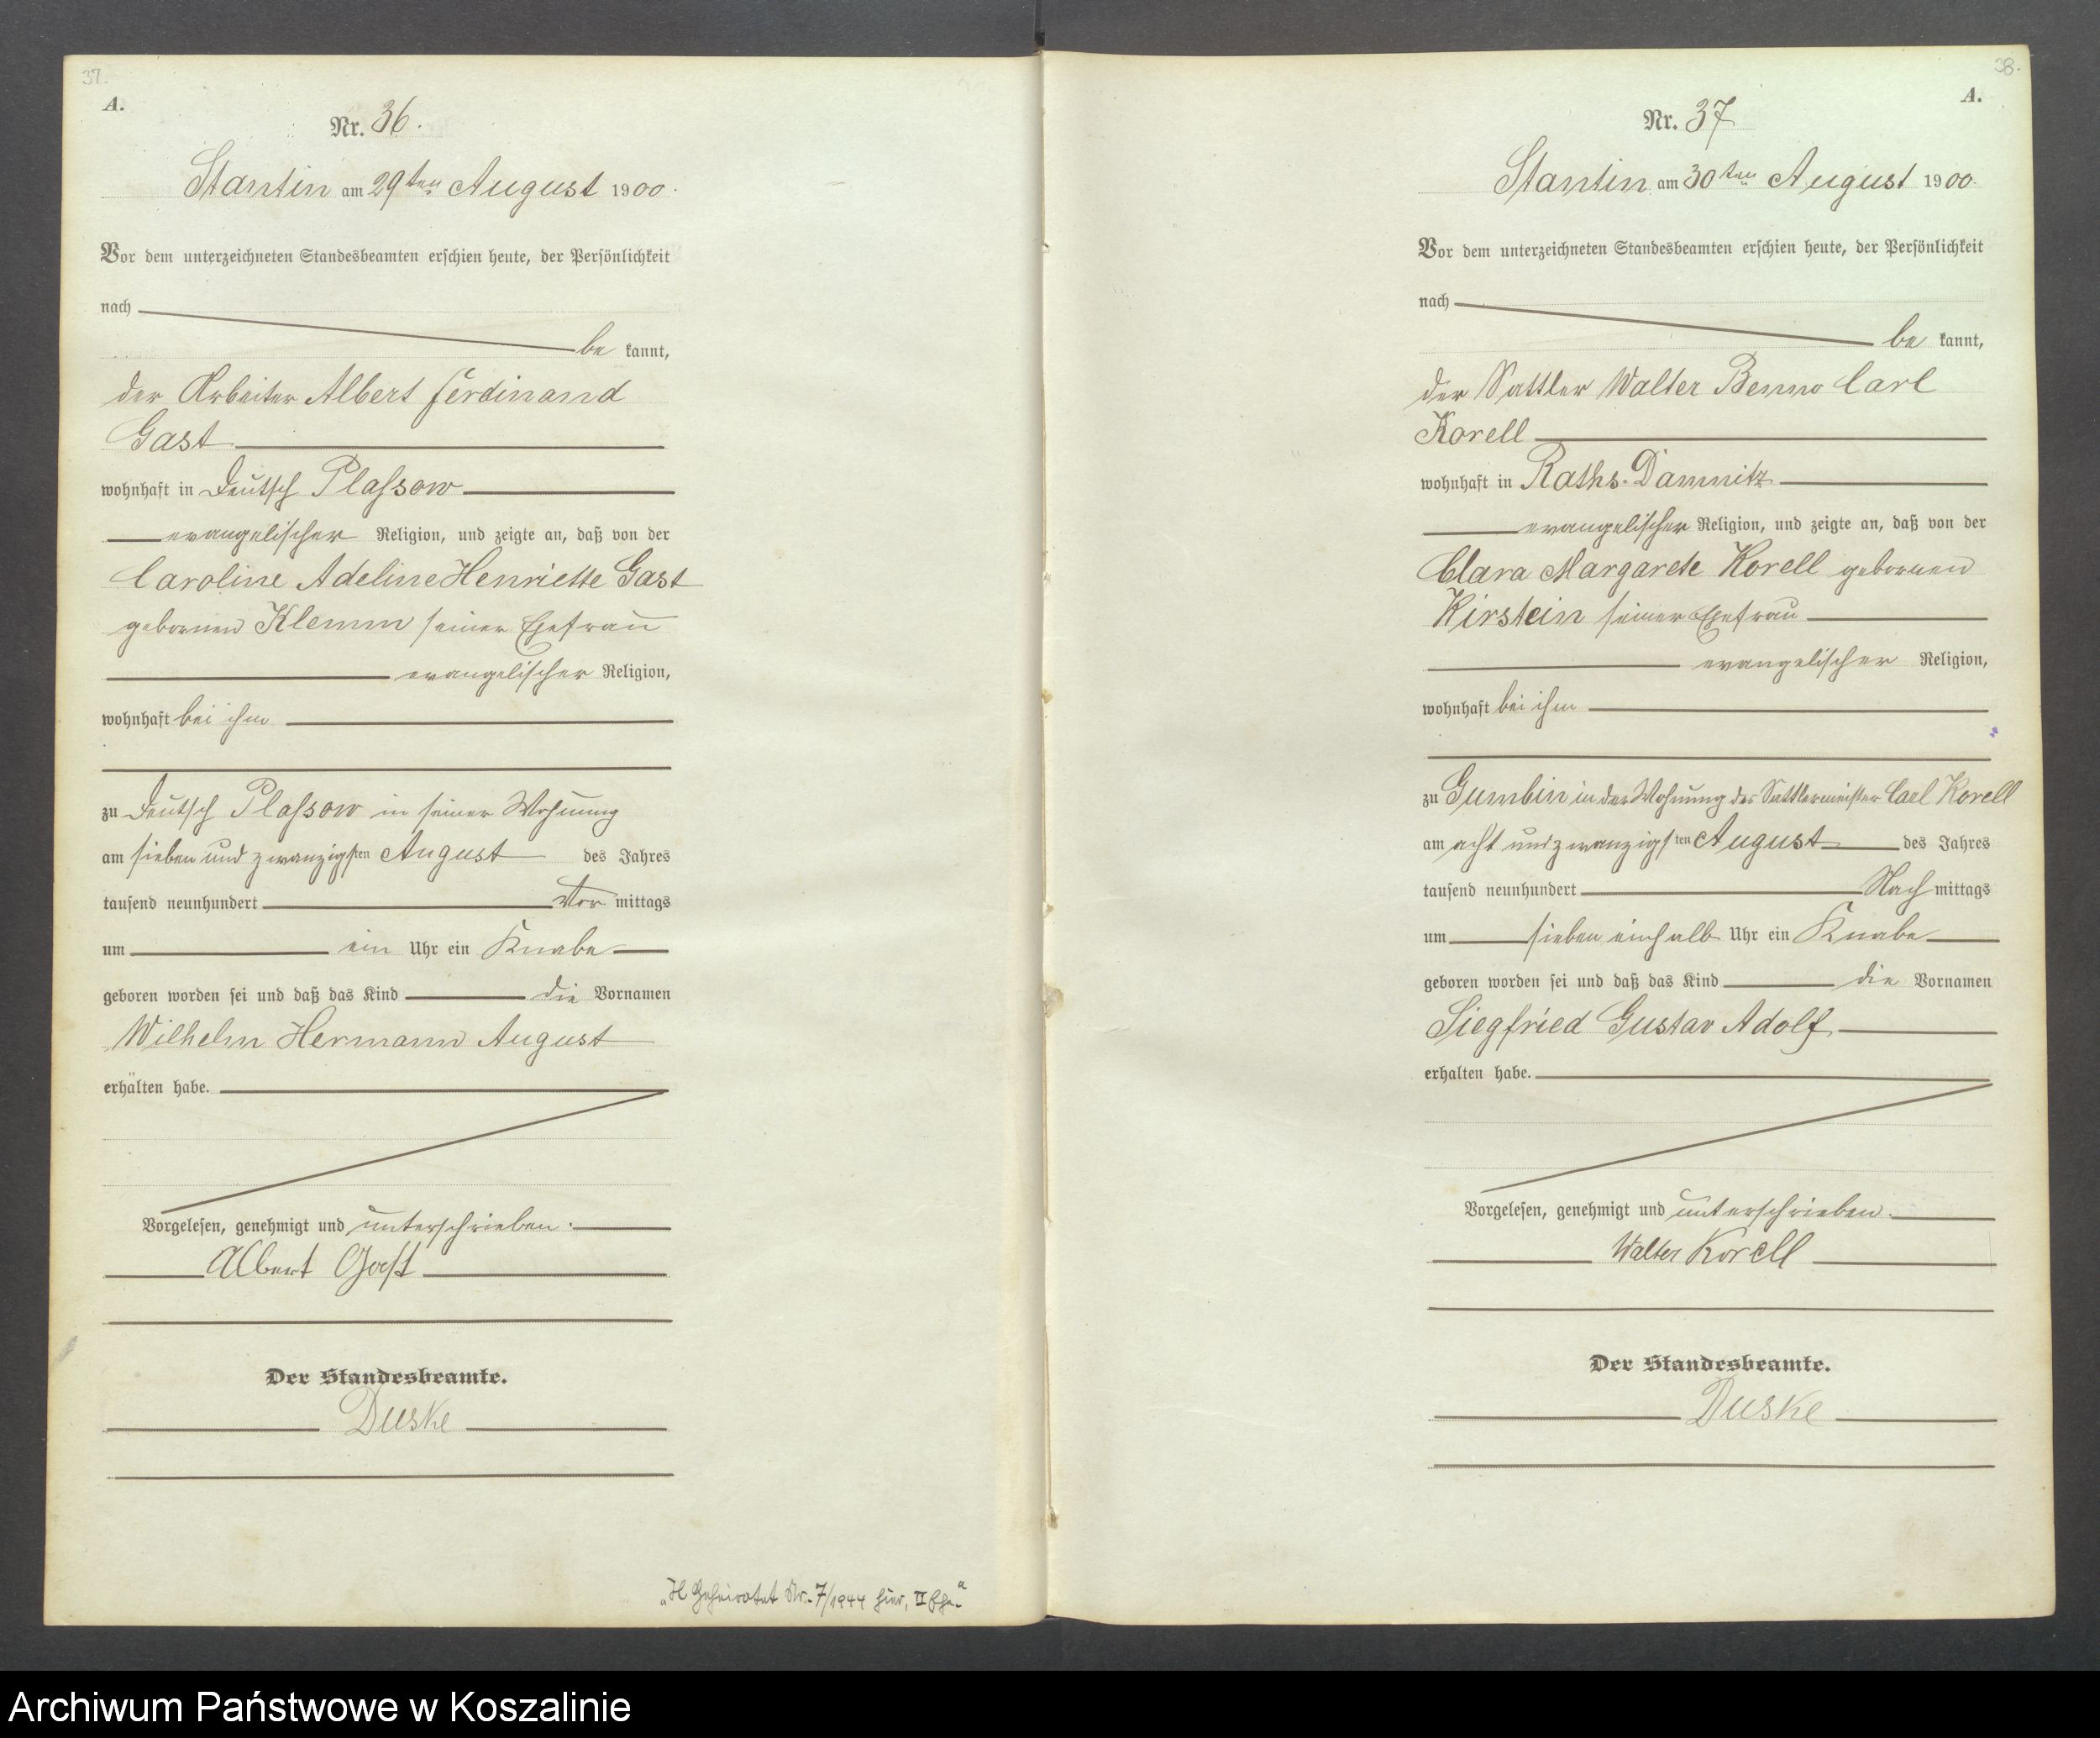 37.
A.
Nr. 36.
Stantin am 29ten August 1900.
Vor dem unterzeichneten Standesbeamten erschien heute, der Persönlichkeit
nach
be kannt,
der Arbeiter Albert Ferdinand
Gast
wohnhaft in Deutsch Plassow
evangelischer Religion, und zeigte an, daß von der
Caroline Adeline Henriette Gast
gebornen Klemm seiner Ehefrau
evangelischer Religion,
wohnhaft bei ihm
zu Deutsch Plassow in seiner Wohnung
am sieben und zwanzigsten August des Jahres
tausend neunhundert Vor mittags
um ein Uhr ein Knabe
geboren worden sei und daß das Kind die Vornamen
Wilhelm Hermann August
erhalten habe.
Vorgelesen, genehmigt und unterschrieben.
Albert Gast
Der Standesbeamte.
Duske
Geheiratet Nr. 7/1944 hier, II Ehe."
38.
A.
Nr. 37
Stantin am 30ten August 1900.
Vor dem unterzeichneten Standesbeamten erschien heute, der Persönlichkeit
nach
be kannt,
der Sattler Walter Benno Carl
Korell
wohnhaft in Raths-Damnitz
evangelischer Religion, und zeigte an, daß von der
Clara Margarete Korell gebornen
Kirstein seiner Ehefrau
evangelischer Religion,
wohnhaft bei ihm
zu Gumbin in der Wohnung des Sattlermeister Carl Korell
am acht und zwanzigsten August des Jahres
tausend neunhundert Nach mittags
um sieben einhalb Uhr ein Knabe
geboren worden sei und daß das Kind die Vornamen
Siegfried Gustav Adolf
erhalten habe.
Vorgelesen, genehmigt und unterschrieben.
Walter Korell
Der Standesbeamte.
Duske
Archiwum Państwowe w Koszalinie